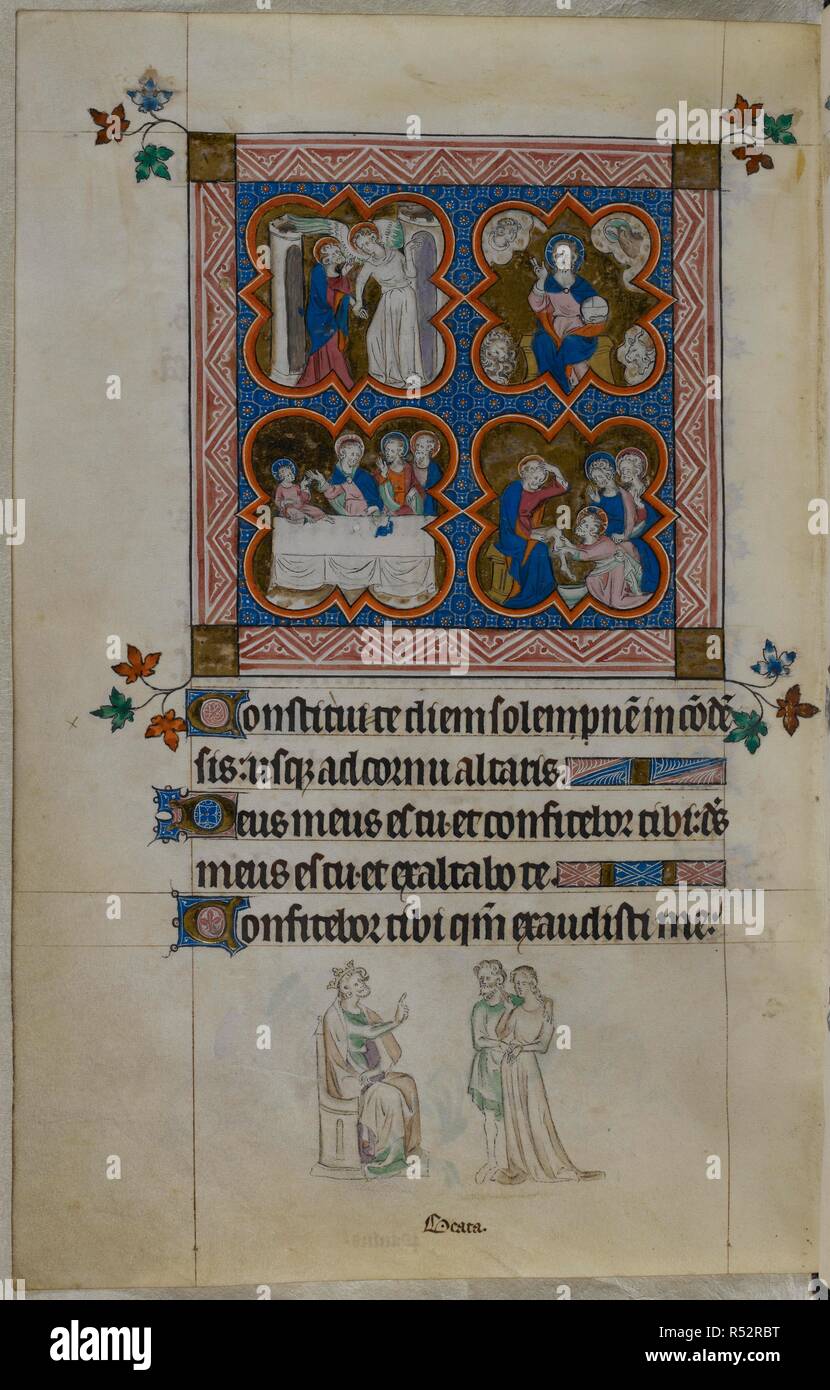 Constitui te diem solempnē in cōdē
sis: usq; ad cornu altaris.
Deus meus es tu et confitebor tibi: ds̄
meus es tu et exaltabo te.
Confitebor tibi qm̄ exaudisti me:
alamy
Image ID: R52RBT
www.alamy.com